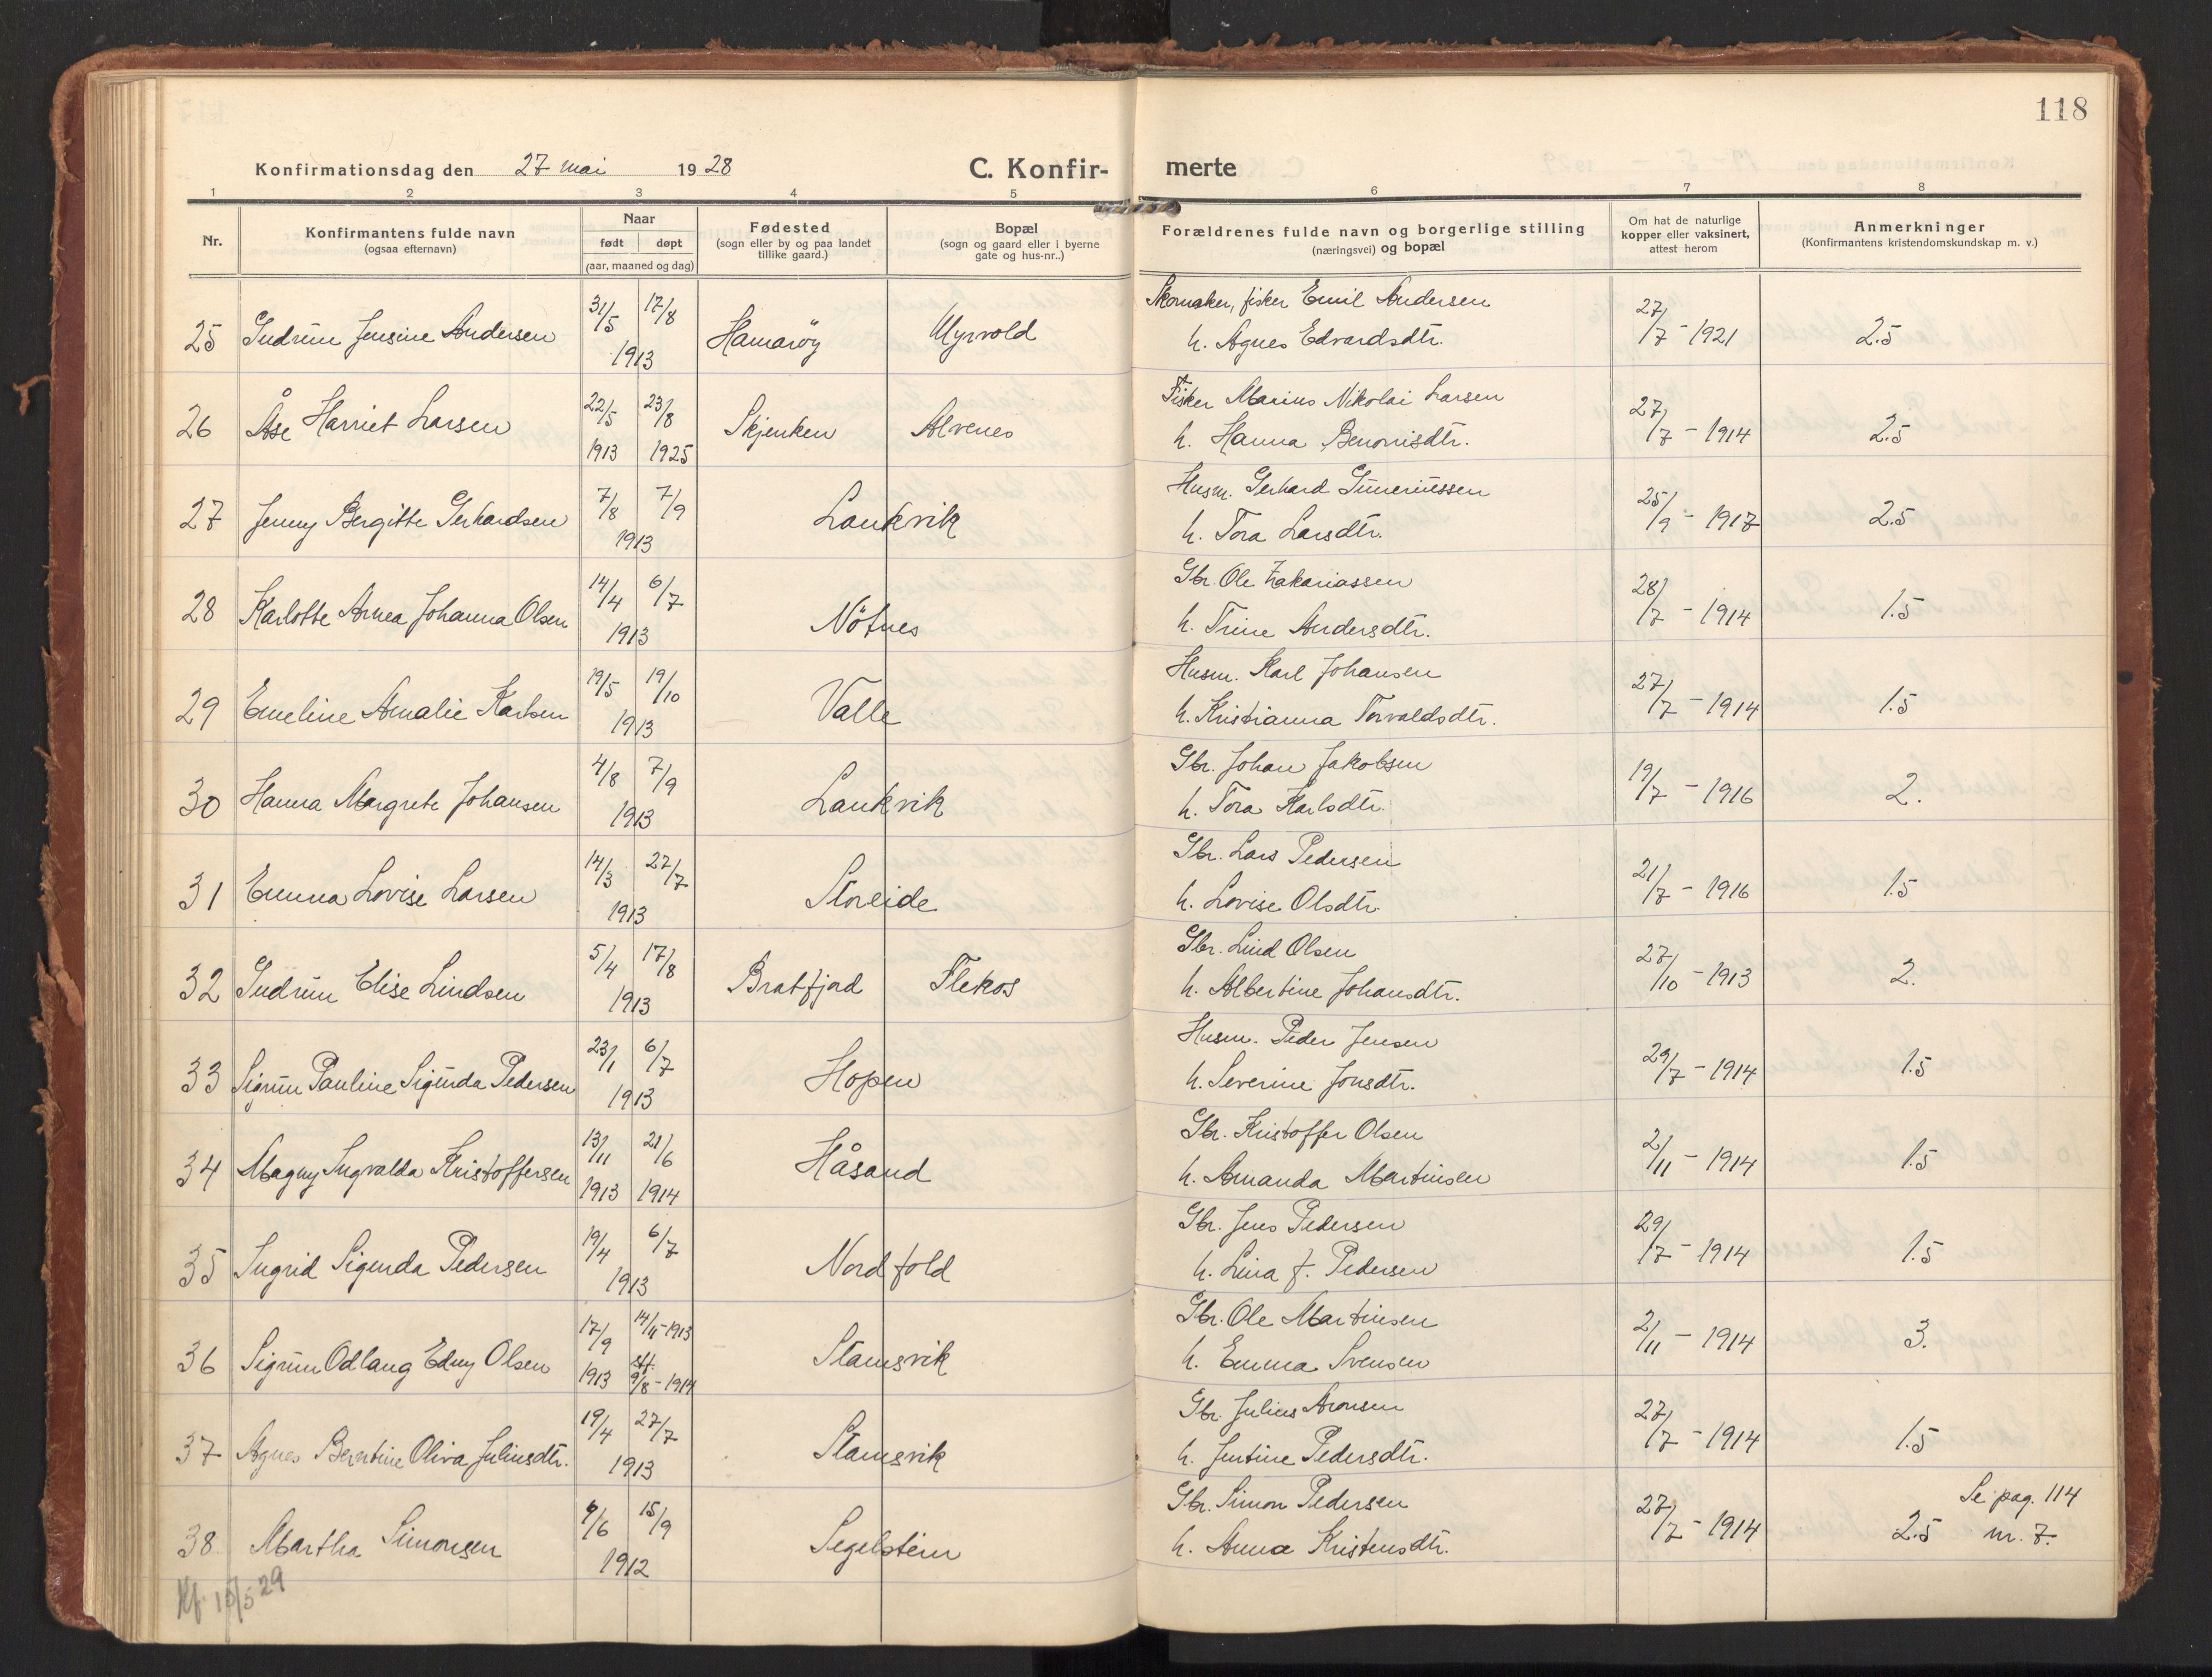 118
Konfirmationsdag den 27 mai 1928 C. Konfir- merte
1 2 3 4 5 6 7 8
Nr. Konfirmantens fulde navn (ogsaa efternavn) Naar født døpt (aar, maaned og dag) Fødested (sogn eller by og paa landet tillike gaard.) Bopæl (sogn og gaard eller i byerne gate og hus-nr..) Forældrenes fulde navn og borgerlige stilling (næringsvei) og bopæl Om hat de naturlige kopper eller vaksinert, attest herom Anmerkninger (Konfirmantens kristendomskundskap m. v.)
25 Gudrun Jensine Andersen 31/5 17/8 1913 Hamarøy Myrvold Skomaker, fisker Emil Andersen h. Agnes Edvardsdtr. 27/7 - 1921 2.5
26 Åse Harriet Larsen 22/5 1913 23/8 1925 Skjenken Alvenes Fisker Marius Nikolai Larsen h. Hanna Benonisdtr. 27/7 - 1914 2.5
27 Jenny Bergitte Gerhardsen 7/8 7/9 1913 Laukvik Husm. Gerhard Guneriussen h. Tora Larsdtr. 25/9 - 1917 2.5
28 Karlotte Arnea Johanna Olsen 14/4 6/7 1913 Nötnes Gbr. Ole Zakariassen h. Trine Andersdtr. 28/7 - 1914 1.5
29 Emeline Amalie Karlsen 19/5 19/10 1913 Valle Husm. Karl Johansen h. Kristianna Torvaldsdtr. 27/7 - 1914 1.5
30 Hanna Margrete Johansen 4/8 7/9 1913 Laukvik Gbr. Johan Jakobsen h. Tora Karlsdtr. 19/7 - 1916 2.
31 Emma Lovise Larsen 14/3 27/7 1913 Storeide Gbr. Lars Pedersen h. Lovise Olsdtr. 21/7 - 1916 1.5
32 Gudrun Elise Lindsen 5/4 17/8 1913 Bratfjord Flekos Gbr. Lind Olsen h. Albertine Johansdtr. 27/10 - 1913 2.
33 Sigrun Pauline Sigunda Pedersen 23/1 6/7 1913 Hopen Husm. Peder Jensen h. Severine Jonsdtr. 29/7 - 1914 1.5
34 Magny Ingvalda Kristoffersen 13/11 1913 21/6 1914 Håsand Gbr. Kristoffer Olsen h. Amanda Martinsen 2/11 - 1914 1.5
35 Ingrid Sigunda Pedersen 19/4 6/7 1913 Nordfold Gbr. Jens Pedersen h. Lina f. Pedersen 29/7 - 1914 1.5
36 Sigrun Odlaug Edny Olsen 17/9 1913 14/11-1913 stf. 9/8 - 1914 Stamsvik Gbr. Ole Martinsen h. Emma Svensen 2/11 - 1914 3.
37 Agnes Berntine Oliva Juliusdtr. 19/4 27/7 1913 Stamsvik Gbr. Julius Aronsen h. Jentine Pedersdtr. 27/7 - 1914 1.5
38 Martha Simonsen 9/6 15/9 1912 Segelstein Gbr. Simon Pedersen h. Anna Kristensdtr. 27/7 - 1914 2.5 Se pag. 114 nr. 7.
Kf. 15/5 29